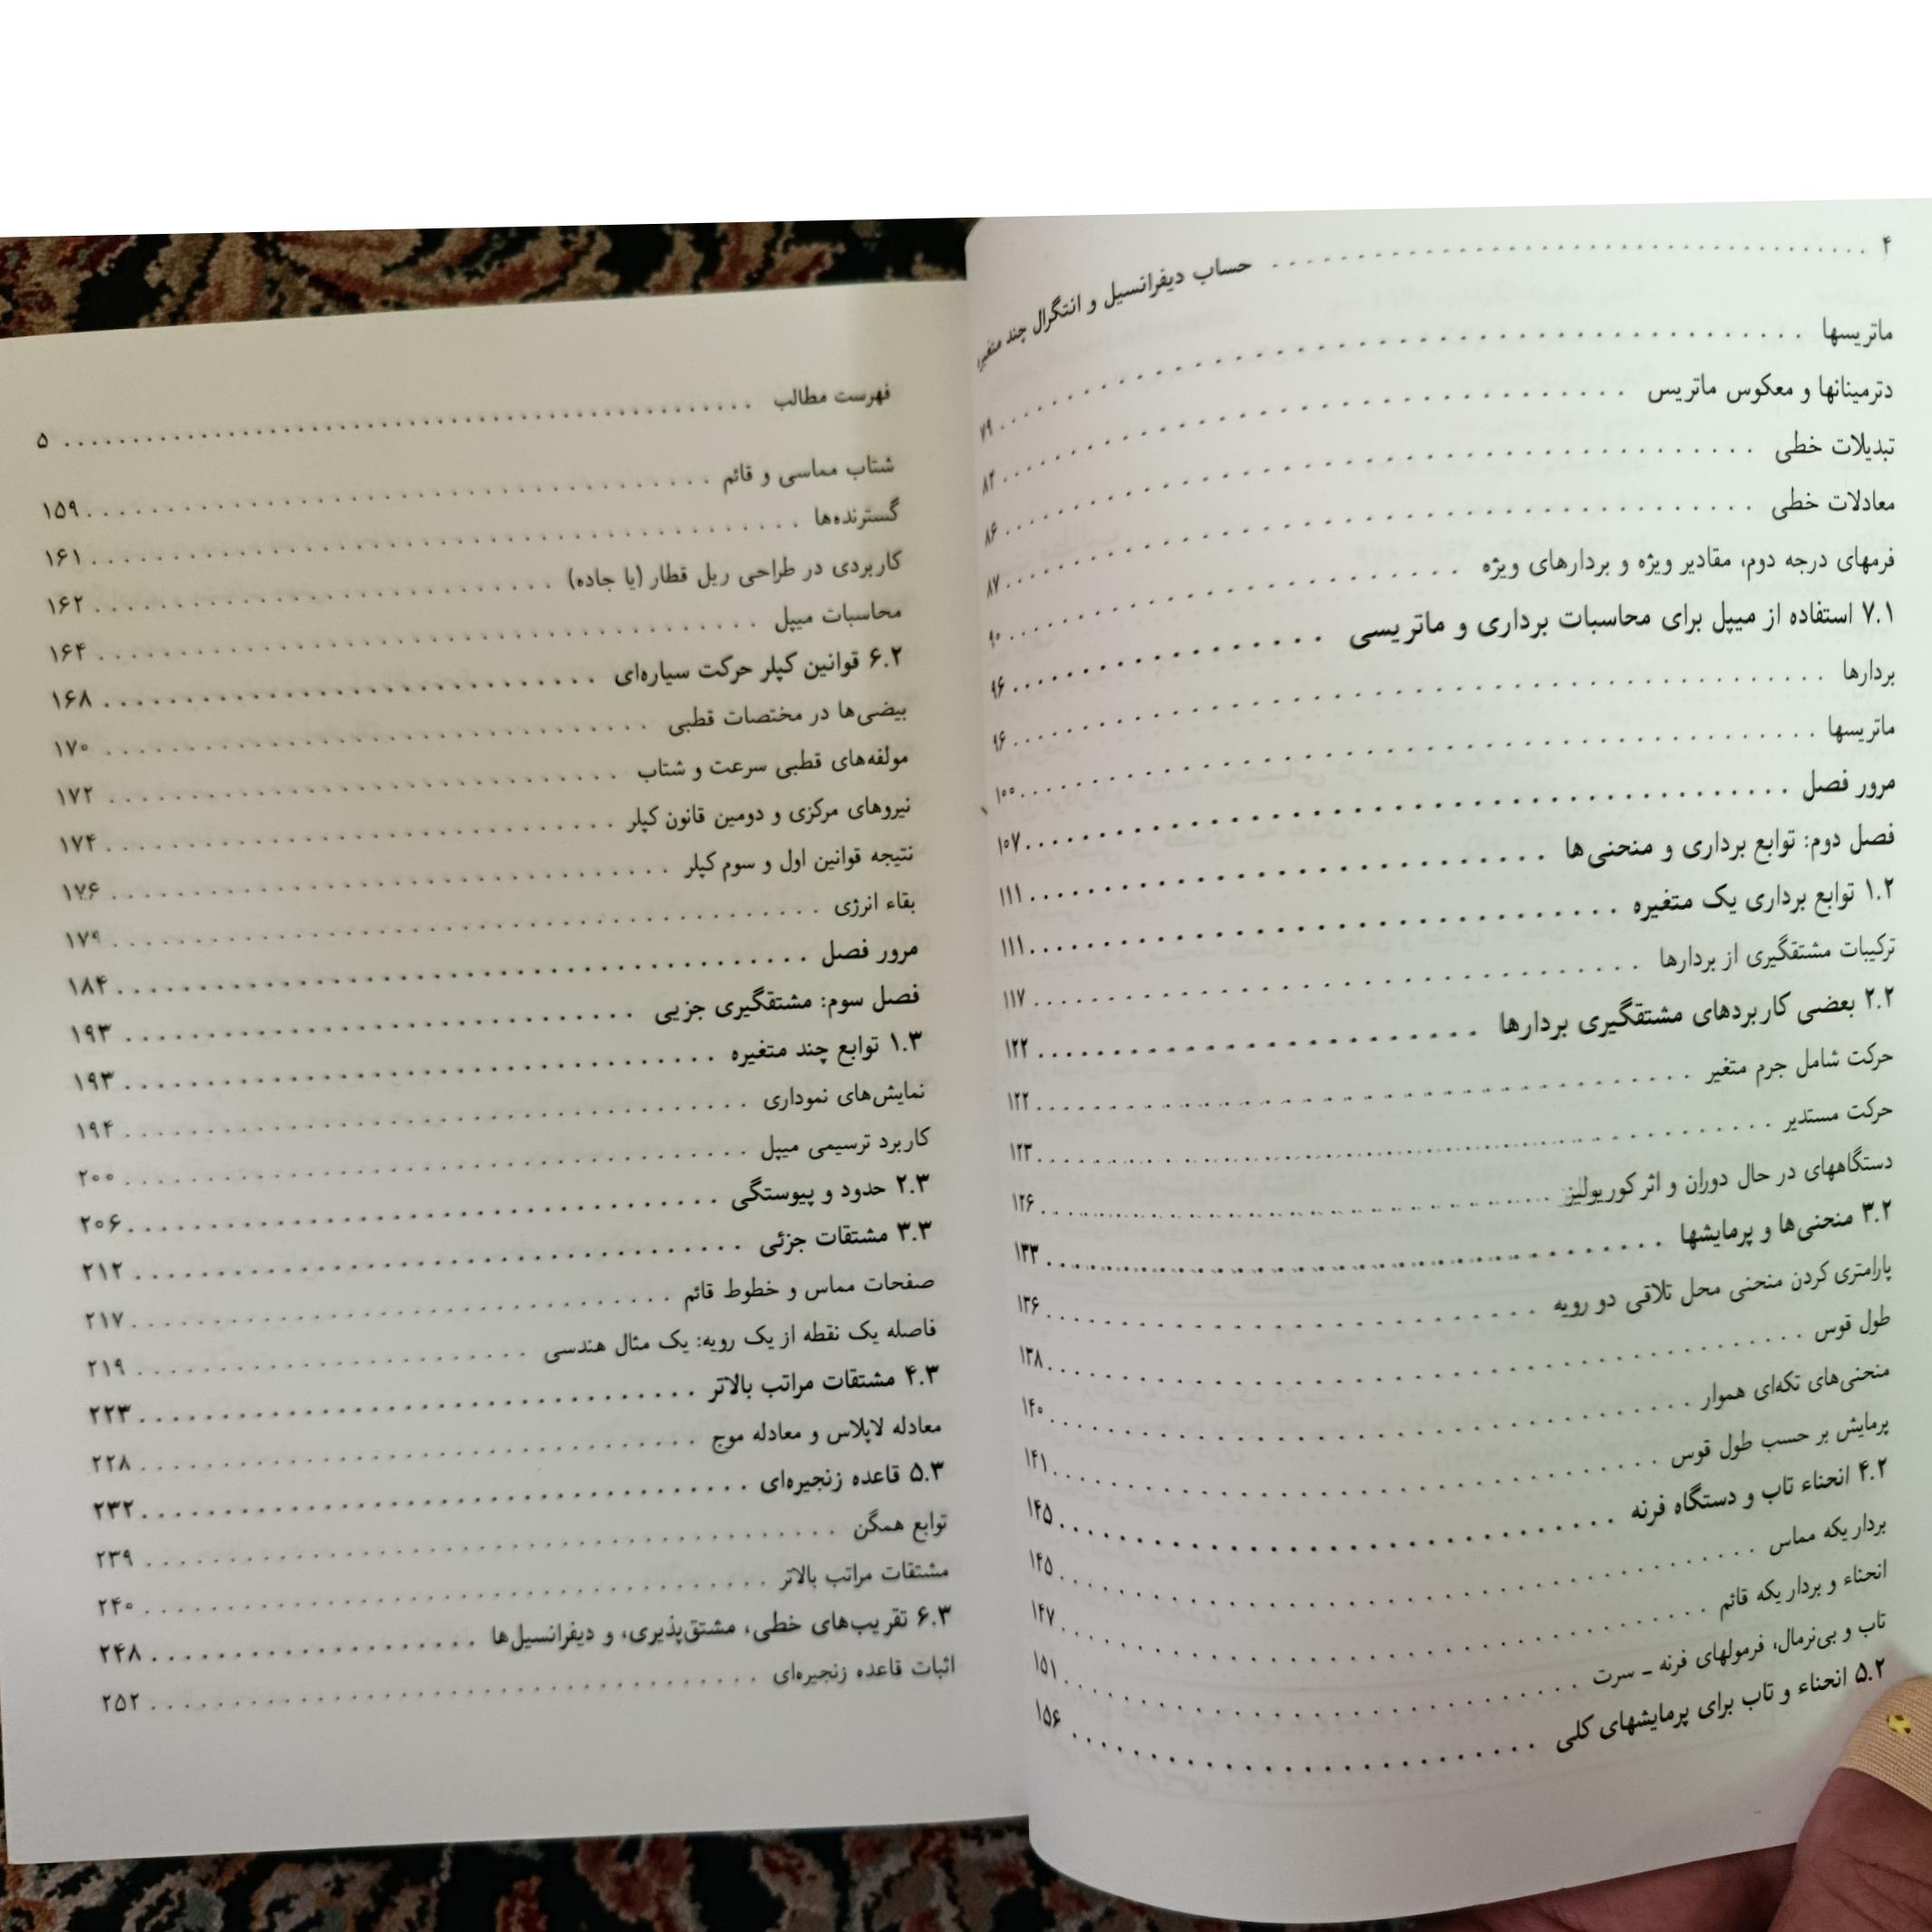 ۴ ........ حساب دیفرانسیل و انتگرال چند متغیره
ماتریسها ........ ۷۹
دترمینانها و معکوس ماتریس ........ ۸۲
تبدیلات خطی ........ ۸۶
معادلات خطی ........ ۸۷
فرمهای درجه دوم، مقادیر ویژه و بردارهای ویژه ........ ۹۰
۷.۱ استفاده از میپل برای محاسبات برداری و ماتریسی ........ ۹۶
بردارها ........ ۹۶
ماتریسها ........ ۱۰۰
مرور فصل ........ ۱۰۷
فصل دوم: توابع برداری و منحنی‌ها ........ ۱۱۱
۱.۲ توابع برداری یک متغیره ........ ۱۱۱
ترکیبات مشتقگیری از بردارها ........ ۱۱۷
۲.۲ بعضی کاربردهای مشتقگیری بردارها ........ ۱۲۲
حرکت شامل جرم متغیر ........ ۱۲۲
حرکت مستدیر ........ ۱۲۳
دستگاههای در حال دوران و اثر کوریولیز ........ ۱۲۶
۳.۲ منحنی‌ها و پرمایشها ........ ۱۳۳
پارامتری کردن منحنی محل تلاقی دو رویه ........ ۱۳۶
طول قوس ........ ۱۳۸
منحنی‌های تکه‌ای هموار ........ ۱۴۰
پرمایش بر حسب طول قوس ........ ۱۴۱
۴.۲ انحناء تاب و دستگاه فرنه ........ ۱۴۵
بردار یکه مماس ........ ۱۴۵
انحناء و بردار یکه قائم ........ ۱۴۷
تاب و بی‌نرمال، فرمولهای فرنه ـ سرت ........ ۱۵۱
۵.۲ انحناء و تاب برای پرمایشهای کلی ........ ۱۵۶
فهرست مطالب ........ ۵
شتاب مماسی و قائم ........ ۱۵۹
گسترنده‌ها ........ ۱۶۱
کاربردی در طراحی ریل قطار (یا جاده) ........ ۱۶۲
محاسبات میپل ........ ۱۶۴
۶.۲ قوانین کپلر حرکت سیاره‌ای ........ ۱۶۸
بیضی‌ها در مختصات قطبی ........ ۱۷۰
مولفه‌های قطبی سرعت و شتاب ........ ۱۷۲
نیروهای مرکزی و دومین قانون کپلر ........ ۱۷۴
نتیجه قوانین اول و سوم کپلر ........ ۱۷۶
بقاء انرژی ........ ۱۷۹
مرور فصل ........ ۱۸۴
فصل سوم: مشتقگیری جزیی ........ ۱۹۳
۱.۳ توابع چند متغیره ........ ۱۹۳
نمایش‌های نموداری ........ ۱۹۴
کاربرد ترسیمی میپل ........ ۲۰۰
۲.۳ حدود و پیوستگی ........ ۲۰۶
۳.۳ مشتقات جزئی ........ ۲۱۲
صفحات مماس و خطوط قائم ........ ۲۱۷
فاصله یک نقطه از یک رویه: یک مثال هندسی ........ ۲۱۹
۴.۳ مشتقات مراتب بالاتر ........ ۲۲۳
معادله لاپلاس و معادله موج ........ ۲۲۸
۵.۳ قاعده زنجیره‌ای ........ ۲۳۲
توابع همگن ........ ۲۳۹
مشتقات مراتب بالاتر ........ ۲۴۰
۶.۳ تقریب‌های خطی، مشتق‌پذیری، و دیفرانسیل‌ها ........ ۲۴۸
اثبات قاعده زنجیره‌ای ........ ۲۵۲